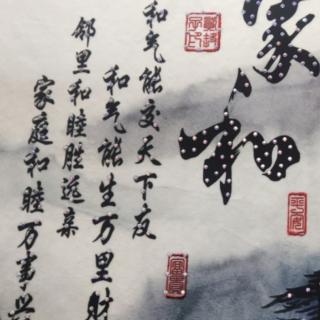 家和
和气能交天下友
和气能生万里财
邻里和睦胜远亲
家庭和睦万事兴
平安
富贵